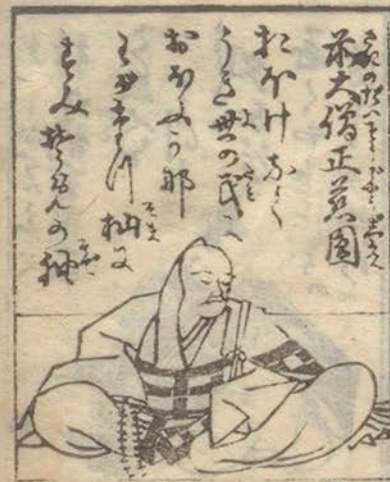 前大僧正慈圓
おほけなく
うき世の民に
おほふか那
わがたつ杣に
すみぞめの袖